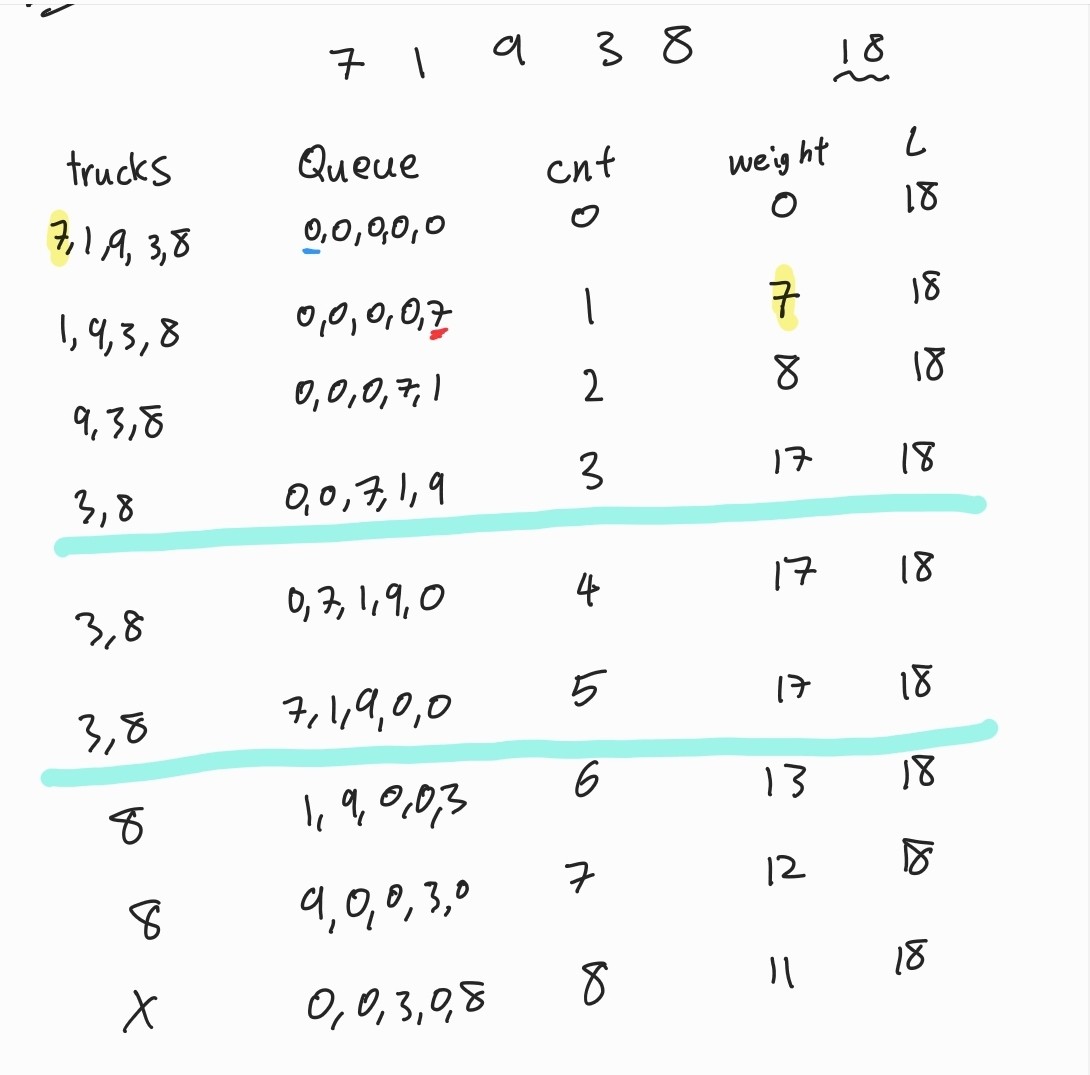 7 1 9 3 8 18
trucks Queue cnt weight L
7,1,9,3,8 0,0,0,0,0 0 0 18
1,9,3,8 0,0,0,0,7 1 7 18
9,3,8 0,0,0,7,1 2 8 18
3,8 0,0,7,1,9 3 17 18
3,8 0,7,1,9,0 4 17 18
3,8 7,1,9,0,0 5 17 18
8 1,9,0,0,3 6 13 18
8 9,0,0,3,0 7 12 18
X 0,0,3,0,8 8 11 18